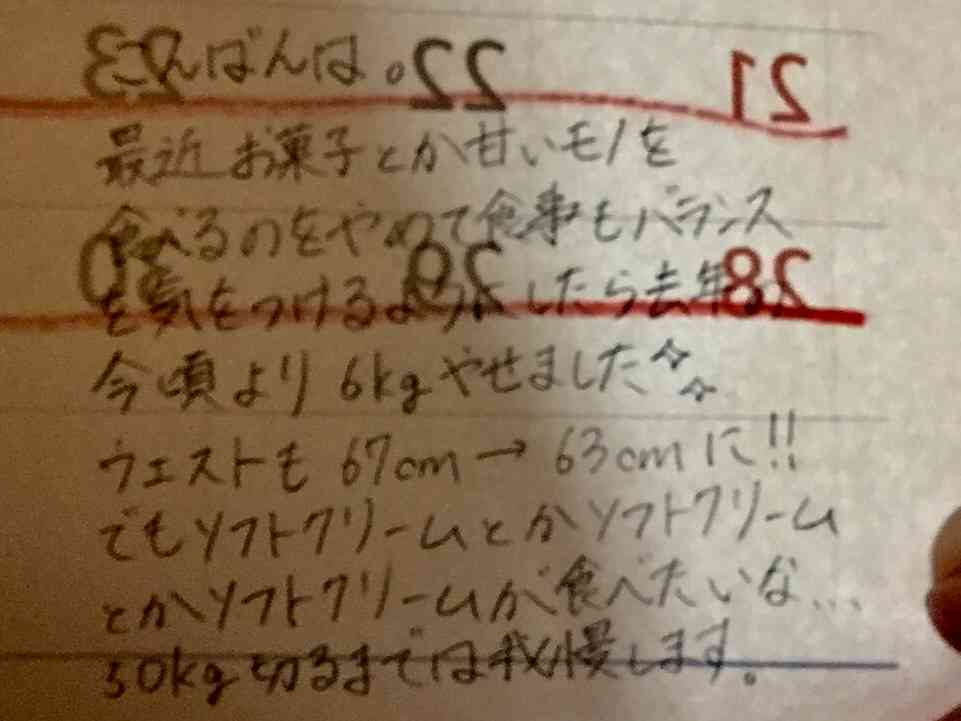 こんばんは。
最近お菓子とか甘いモノを
食べるのをやめて食事もバランス
を気をつけるようにしたら去年の
今頃より6kgやせました✧✧
ウエストも67cm→63cmに!!
でもソフトクリームとかソフトクリーム
とかソフトクリームが食べたいな...
50kg切るまでは我慢します。
21
22
23
28
29
30